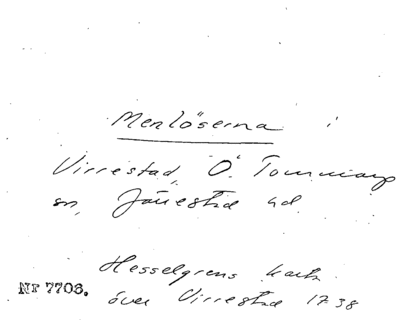 Menlöserna i
Virrestad, Ö. Tommarp
sn, Järrestad hd.
Hesselgrens karta
över Virrestad 1738
Nr 7706.